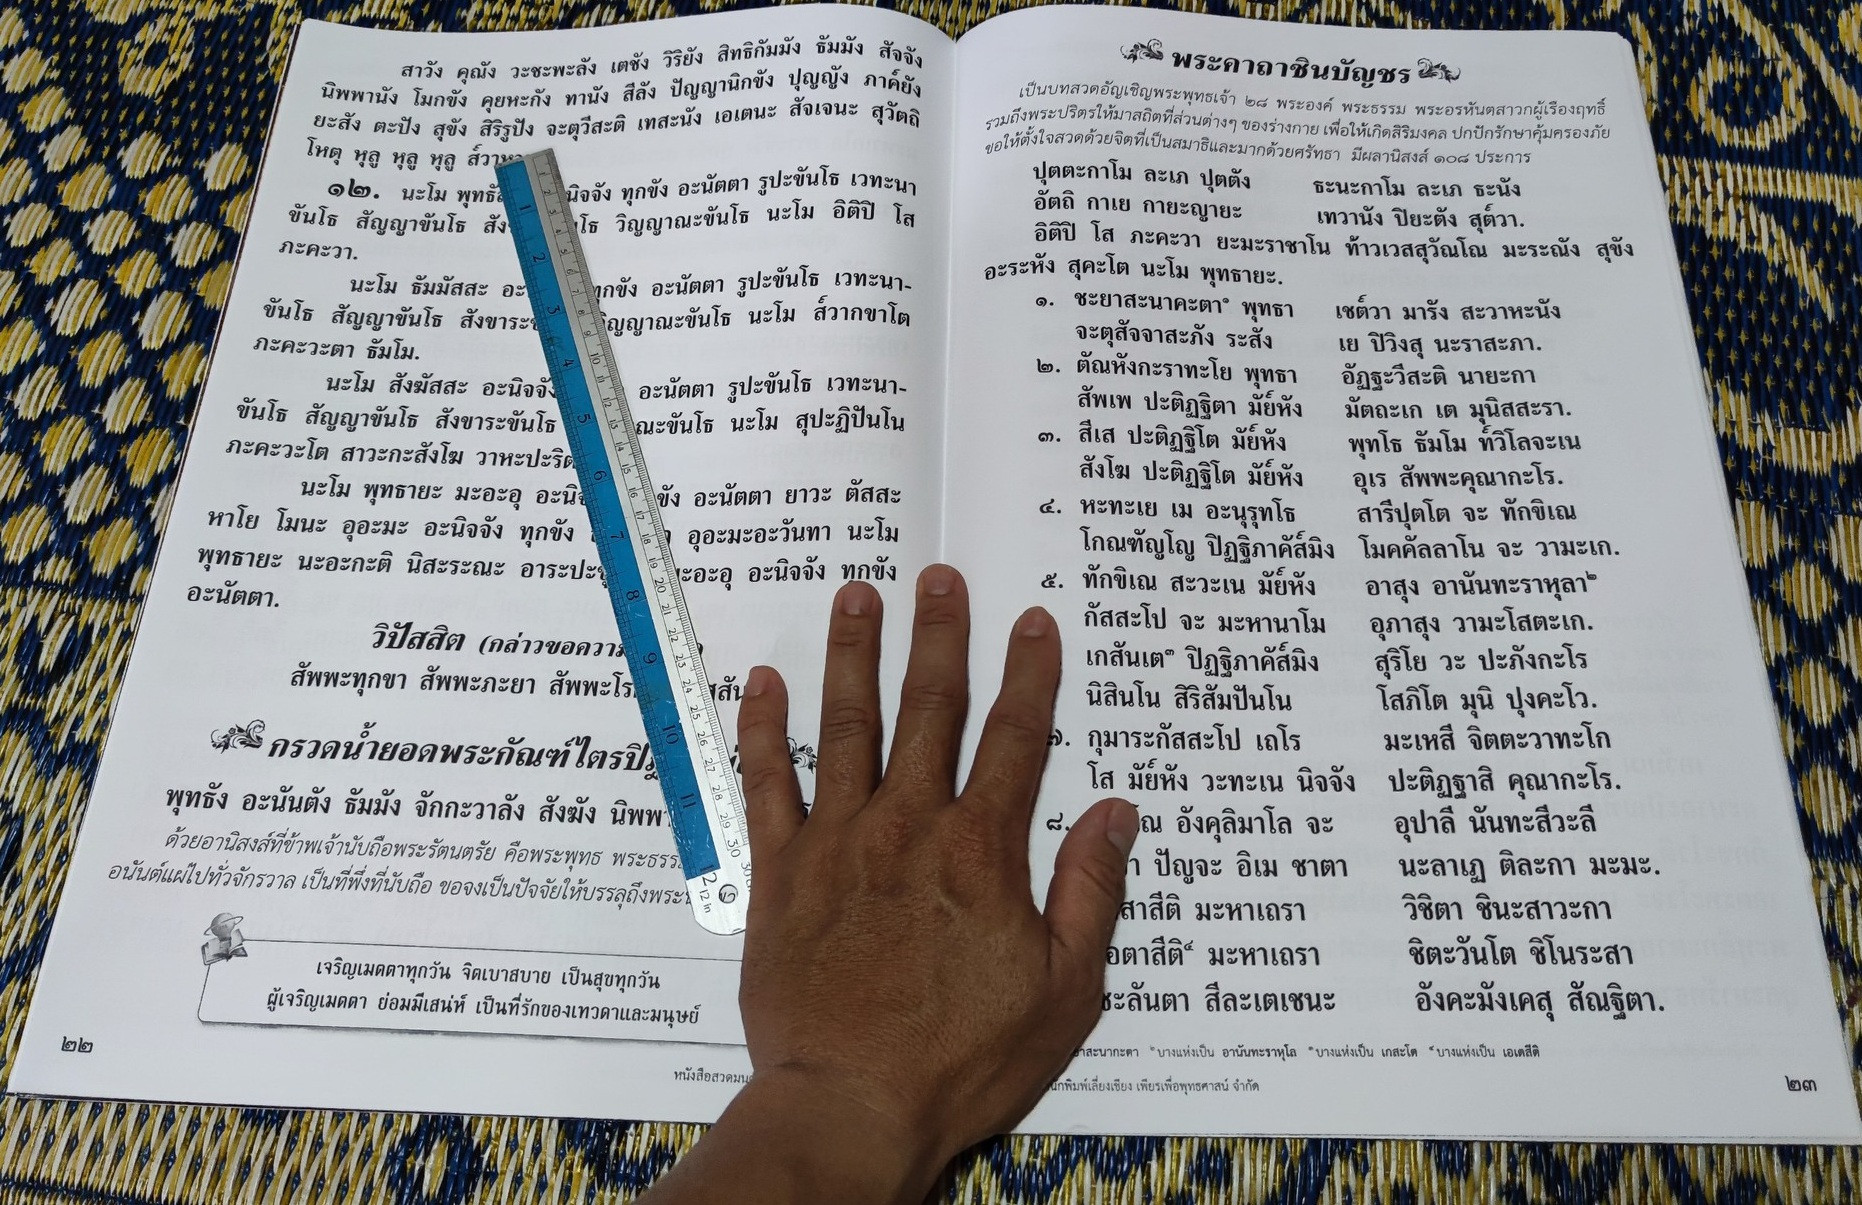 สาวัง คุณัง วะชะพะลัง เตชัง วิริยัง สิทธิกัมมัง ธัมมัง สัจจัง
นิพพานัง โมกขัง คุยหะกัง ทานัง สีลัง ปัญญานิกขัง ปุญญัง ภาค์ยัง
ยะสัง ตะปัง สุขัง สิริรูปัง จะตุวีสะติ เทสะนัง เอเตนะ สัจเจนะ สุวัตถิ
โหตุ หุลู หุลู หุลู ส์วาหา
๑๒. นะโม พุทธั นิจจัง ทุกขัง อะนัตตา รูปะขันโธ เวทะนา
ขันโธ สัญญาขันโธ สัง โธ วิญญาณะขันโธ นะโม อิติปิ โส
ภะคะวา.
นะโม ธัมมัสสะ อะ ทุกขัง อะนัตตา รูปะขันโธ เวทะนา-
ขันโธ สัญญาขันโธ สังขาระข วิญญาณะขันโธ นะโม ส์วากขาโต
ภะคะวะตา ธัมโม.
นะโม สังฆัสสะ อะนิจจัง อะนัตตา รูปะขันโธ เวทะนา-
ขันโธ สัญญาขันโธ สังขาระขันโธ ณะขันโธ นะโม สุปะฏิปันโน
ภะคะวะโต สาวะกะสังโฆ วาหะปะริต
นะโม พุทธายะ มะอะอุ อะนิจ ขัง อะนัตตา ยาวะ ตัสสะ
หาโย โมนะ อุอะมะ อะนิจจัง ทุกขัง อุอะมะอะวันทา นะโม
พุทธายะ นะอะกะติ นิสะระณะ อาระปะขุ มะอะอุ อะนิจจัง ทุกขัง
อะนัตตา.
วิปัสสิต (กล่าวขอความ
สัพพะทุกขา สัพพะภะยา สัพพะโร สสัน
กรวดน้ำยอดพระกัณฑ์ไตรปิฎ
พุทธัง อะนันตัง ธัมมัง จักกะวาลัง สังฆัง นิพพา
ด้วยอานิสงส์ที่ข้าพเจ้านับถือพระรัตนตรัย คือพระพุทธ พระธรรม
อนันต์แผ่ไปทั่วจักรวาล เป็นที่พึ่งที่นับถือ ขอจงเป็นปัจจัยให้บรรลุถึงพระ
เจริญเมตตาทุกวัน จิตเบาสบาย เป็นสุขทุกวัน
ผู้เจริญเมตตา ย่อมมีเสน่ห์ เป็นที่รักของเทวดาและมนุษย์
๒๒
หนังสือสวดมน
พระคาถาชินบัญชร
เป็นบทสวดอัญเชิญพระพุทธเจ้า ๒๘ พระองค์ พระธรรม พระอรหันตสาวกผู้เรืองฤทธิ์
รวมถึงพระปริตรให้มาสถิตที่ส่วนต่างๆ ของร่างกาย เพื่อให้เกิดสิริมงคล ปกปักรักษาคุ้มครองภัย
ขอให้ตั้งใจสวดด้วยจิตที่เป็นสมาธิและมากด้วยศรัทธา มีผลานิสงส์ ๑๐๘ ประการ
ปุตตะกาโม ละเภ ปุตตัง ธะนะกาโม ละเภ ธะนัง
อัตถิ กาเย กายะญายะ เทวานัง ปิยะตัง สุต์วา.
อิติปิ โส ภะคะวา ยะมะราชาโน ท้าวเวสสุวัณโณ มะระณัง สุขัง
อะระหัง สุคะโต นะโม พุทธายะ.
๑. ชะยาสะนาคะตา๑ พุทธา เชต์วา มารัง สะวาหะนัง
จะตุสัจจาสะภัง ระสัง เย ปิวิงสุ นะราสะภา.
๒. ตัณหังกะราทะโย พุทธา อัฏฐะวีสะติ นายะกา
สัพเพ ปะติฏฐิตา มัย์หัง มัตถะเก เต มุนิสสะรา.
๓. สีเส ปะติฏฐิโต มัย์หัง พุทโธ ธัมโม ท์วิโลจะเน
สังโฆ ปะติฏฐิโต มัย์หัง อุเร สัพพะคุณากะโร.
๔. หะทะเย เม อะนุรุทโธ สารีปุตโต จะ ทักขิเณ
โกณฑัญโญ ปิฏฐิภาคัส์มิง โมคคัลลาโน จะ วามะเก.
๕. ทักขิเณ สะวะเน มัย์หัง อาสุง อานันทะราหุลา๒
กัสสะโป จะ มะหานาโม อุภาสุง วามะโสตะเก.
เกสันเต๓ ปิฏฐิภาคัส์มิง สุริโย วะ ปะภังกะโร
นิสินโน สิริสัมปันโน โสภิโต มุนิ ปุงคะโว.
๗. กุมาระกัสสะโป เถโร มะเหสี จิตตะวาทะโก
โส มัย์หัง วะทะเน นิจจัง ปะติฏฐาสิ คุณากะโร.
๘. ณ อังคุลิมาโล จะ อุปาลี นันทะสีวะลี
า ปัญจะ อิเม ชาตา นะลาเฏ ติละกา มะมะ.
สาสีติ มะหาเถรา วิชิตา ชินะสาวะกา
อตาสีติ๔ มะหาเถรา ชิตะวันโต ชิโนระสา
ชะลันตา สีละเตเชนะ อังคะมังเคสุ สัณฐิตา.
าสะนากะตา ๒บางแห่งเป็น อานันทะราหุโล ๓บางแห่งเป็น เกสะโต ๔บางแห่งเป็น เอเตสีติ
นักพิมพ์เลี่ยงเชียง เพียรเพื่อพุทธศาสน์ จำกัด
๒๓
1 2 3 4 5 6 7 8 9 10 11 12
12 in